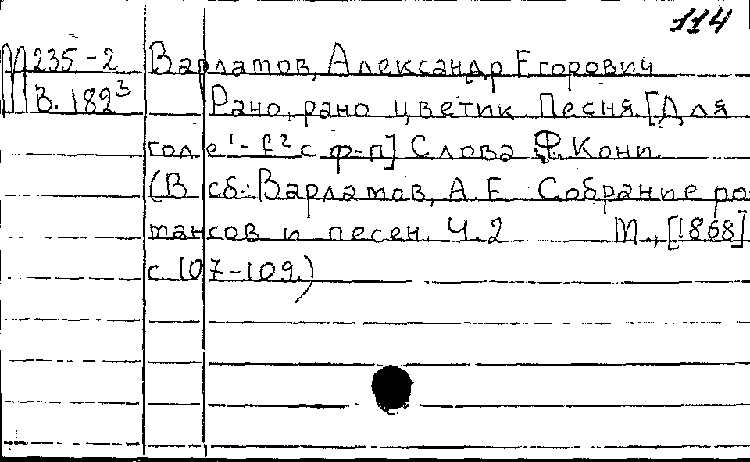 114
М 235-2 Варламов, Александр Егорович
В. 189³ Рано, рано цветик. Песня. [Для
голе¹-f² с ф-п] Слова Ф. Кони
(В сб.: Варламов, А. Е. Собрание ро-
мансов и песен. Ч. 2 М., [1868]
с. 107-109.)